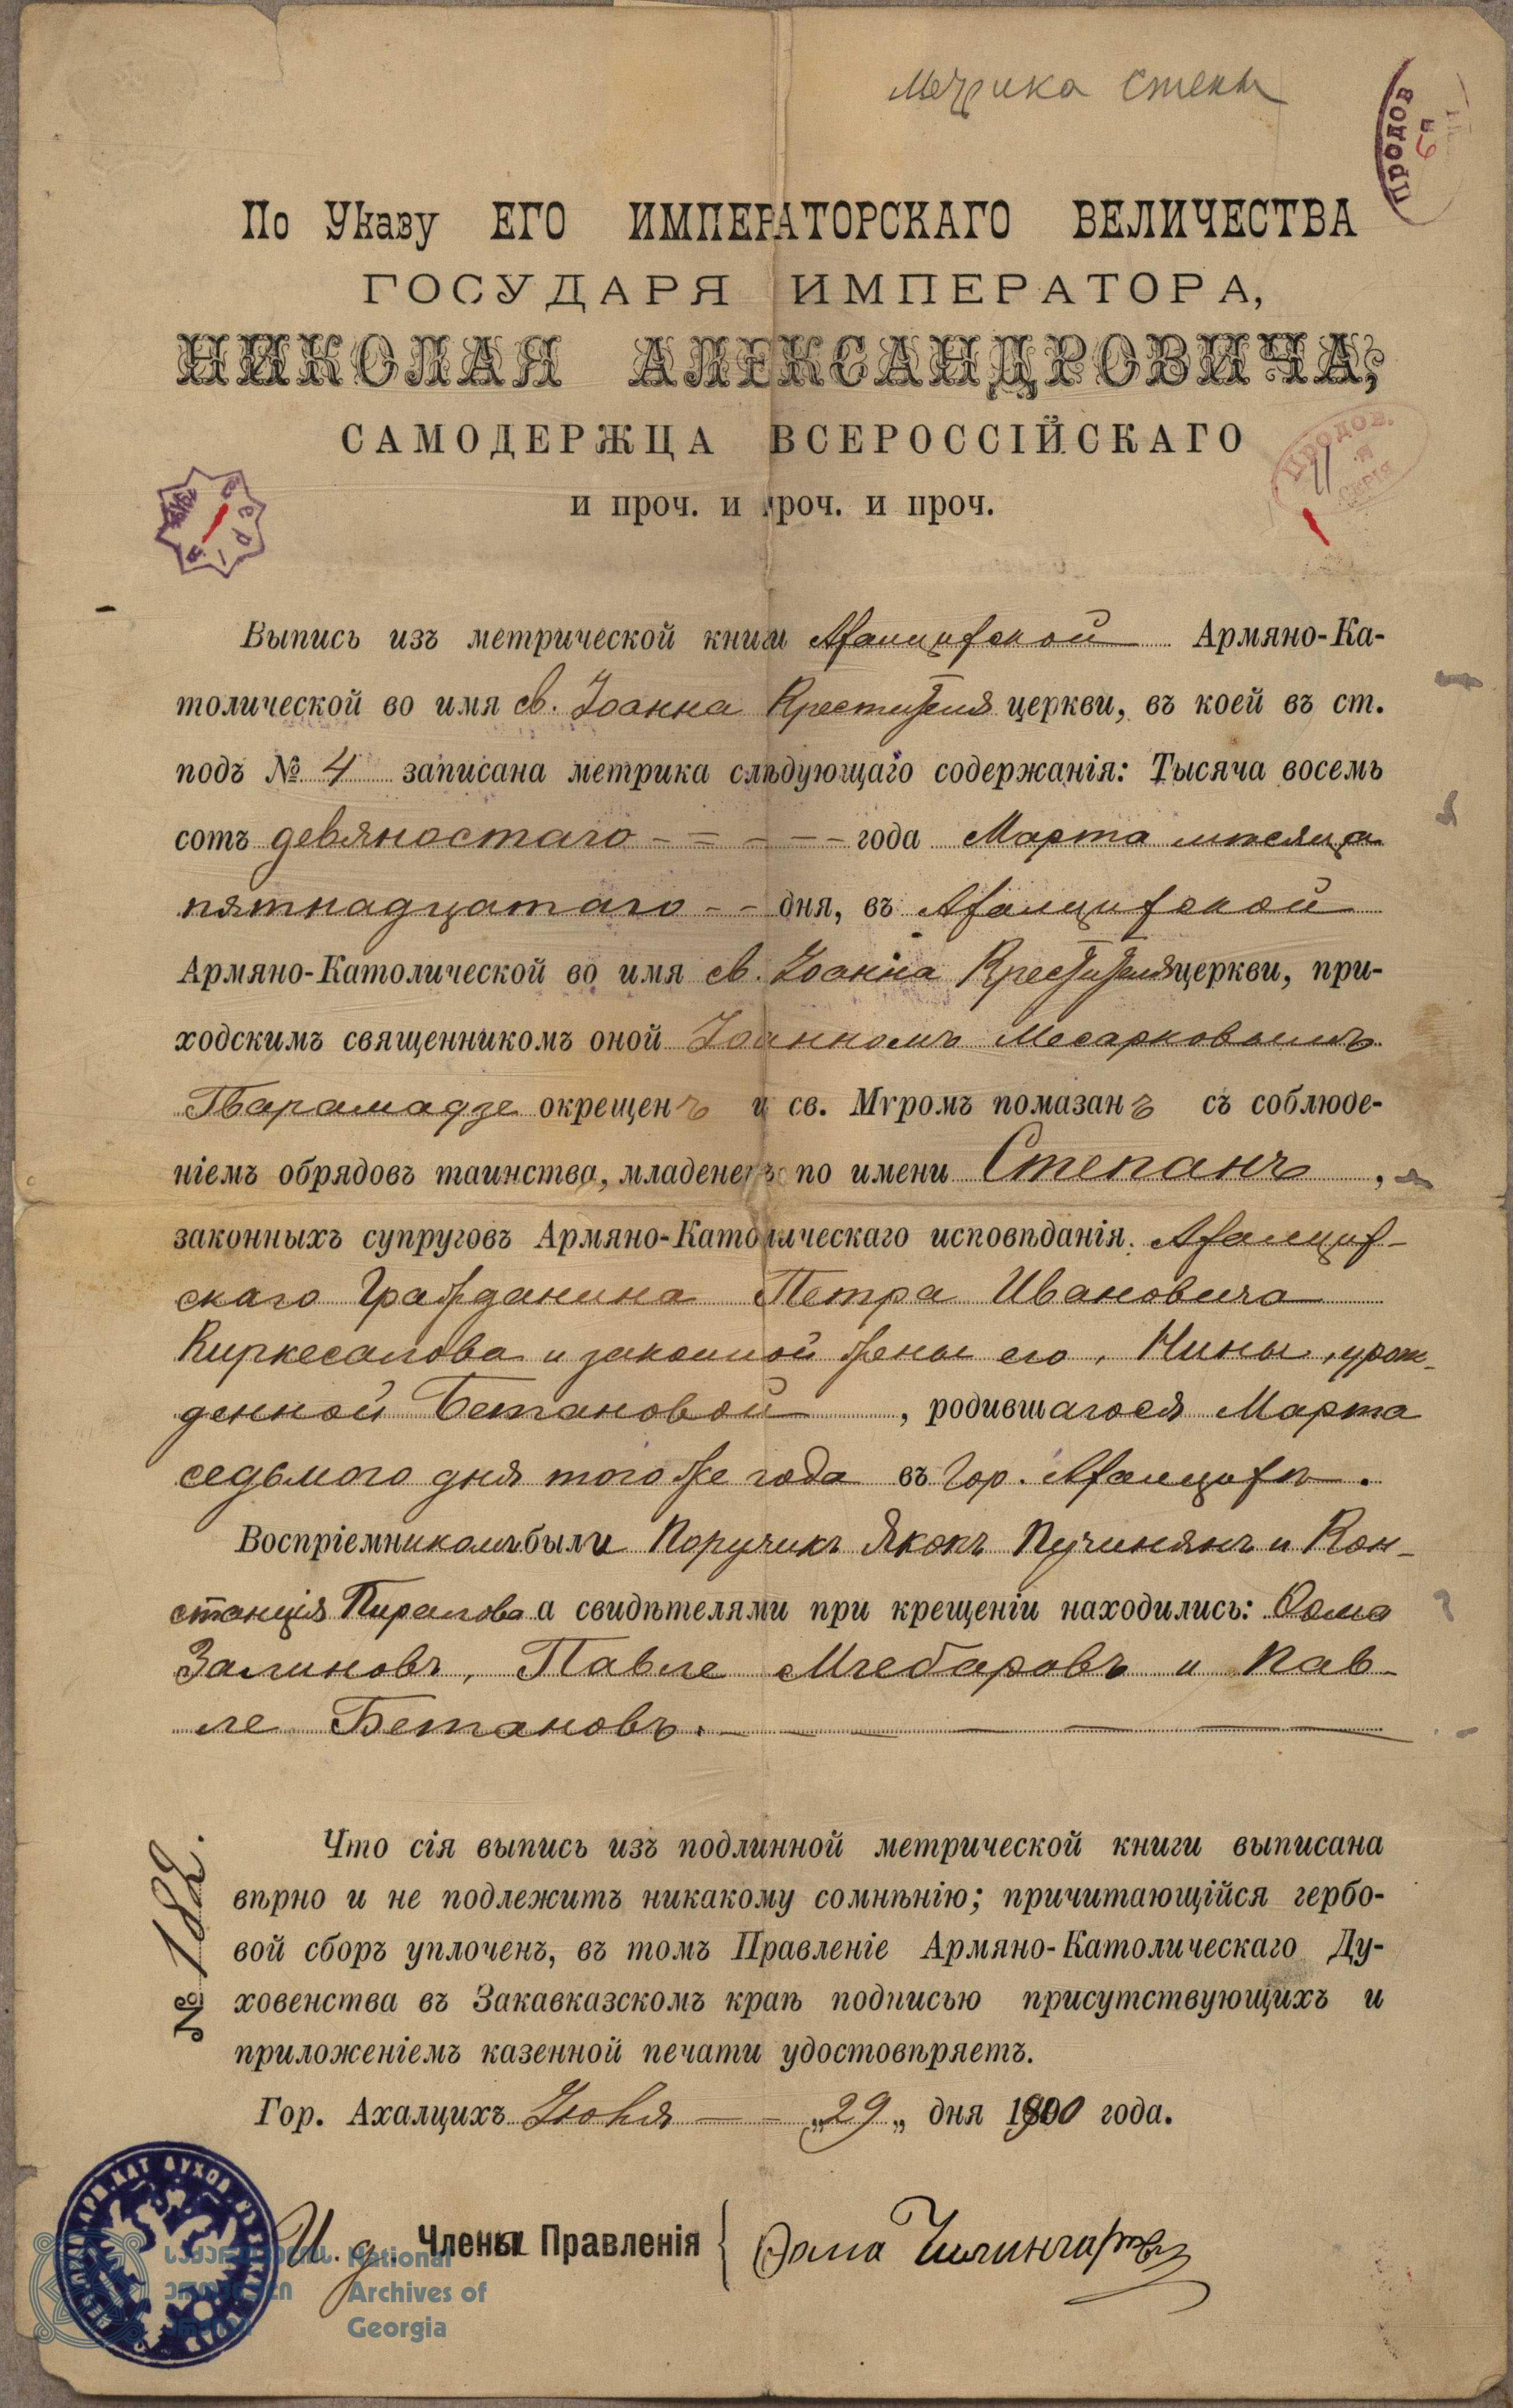 Метрика Степы
ПРОДОВ
По Указу ЕГО ИМПЕРАТОРСКАГО ВЕЛИЧЕСТВА
ГОСУДАРЯ ИМПЕРАТОРА,
НИКОЛАЯ АЛЕКСАНДРОВИЧА,
САМОДЕРЖЦА ВСЕРОССІЙСКАГО
и проч. и проч. и проч.
ПРОДОВ.
Выпись изъ метрической книги Ахалцихской Армяно-Ка-
толической во имя св. Іоанна Крестителя церкви, въ коей въ ст.
подъ № 4 записана метрика слѣдующаго содержанія: Тысяча восемь
сотъ девяностаго года Марта мѣсяца
пятнадцатаго дня, въ Ахалцихской
Армяно-Католической во имя св. Іоанна Крестителя церкви, при-
ходскимъ священникомъ оной Іоанномъ
окрещенъ и св. Мѵромъ помазанъ съ соблюде-
ніемъ обрядовъ таинства, младенецъ по имени Степанъ,
законныхъ супруговъ Армяно-Католическаго исповѣданія, Ахалцих-
скаго Гражданина Петра Ивановича
Киркесалова и законной жены его, Нины, урож-
денной Бетановой, родившагося Марта
седьмого дня того же года въ гор. Ахалцихѣ.
Воспріемниками были Поручикъ Якопъ Пучинянъ и Кон-
станція Пиралова а свидѣтелями при крещеніи находились: Ѳома
Залиновъ, Павле Мгебаровъ и Пав-
ле Бетановъ.
№ 182.
Что сія выпись изъ подлинной метрической книги выписана
вѣрно и не подлежитъ никакому сомнѣнію; причитающійся гербо-
вой сборъ уплоченъ, въ томъ Правленіе Армяно-Католическаго Ду-
ховенства въ Закавказскомъ краѣ подписью присутствующихъ и
приложеніемъ казенной печати удостовѣряетъ.
Гор. Ахалцихъ Іюня „29„ дня 1900 года.
И. д. Члена Правленія Ѳома Чилингаровъ
National
Archives of
Georgia